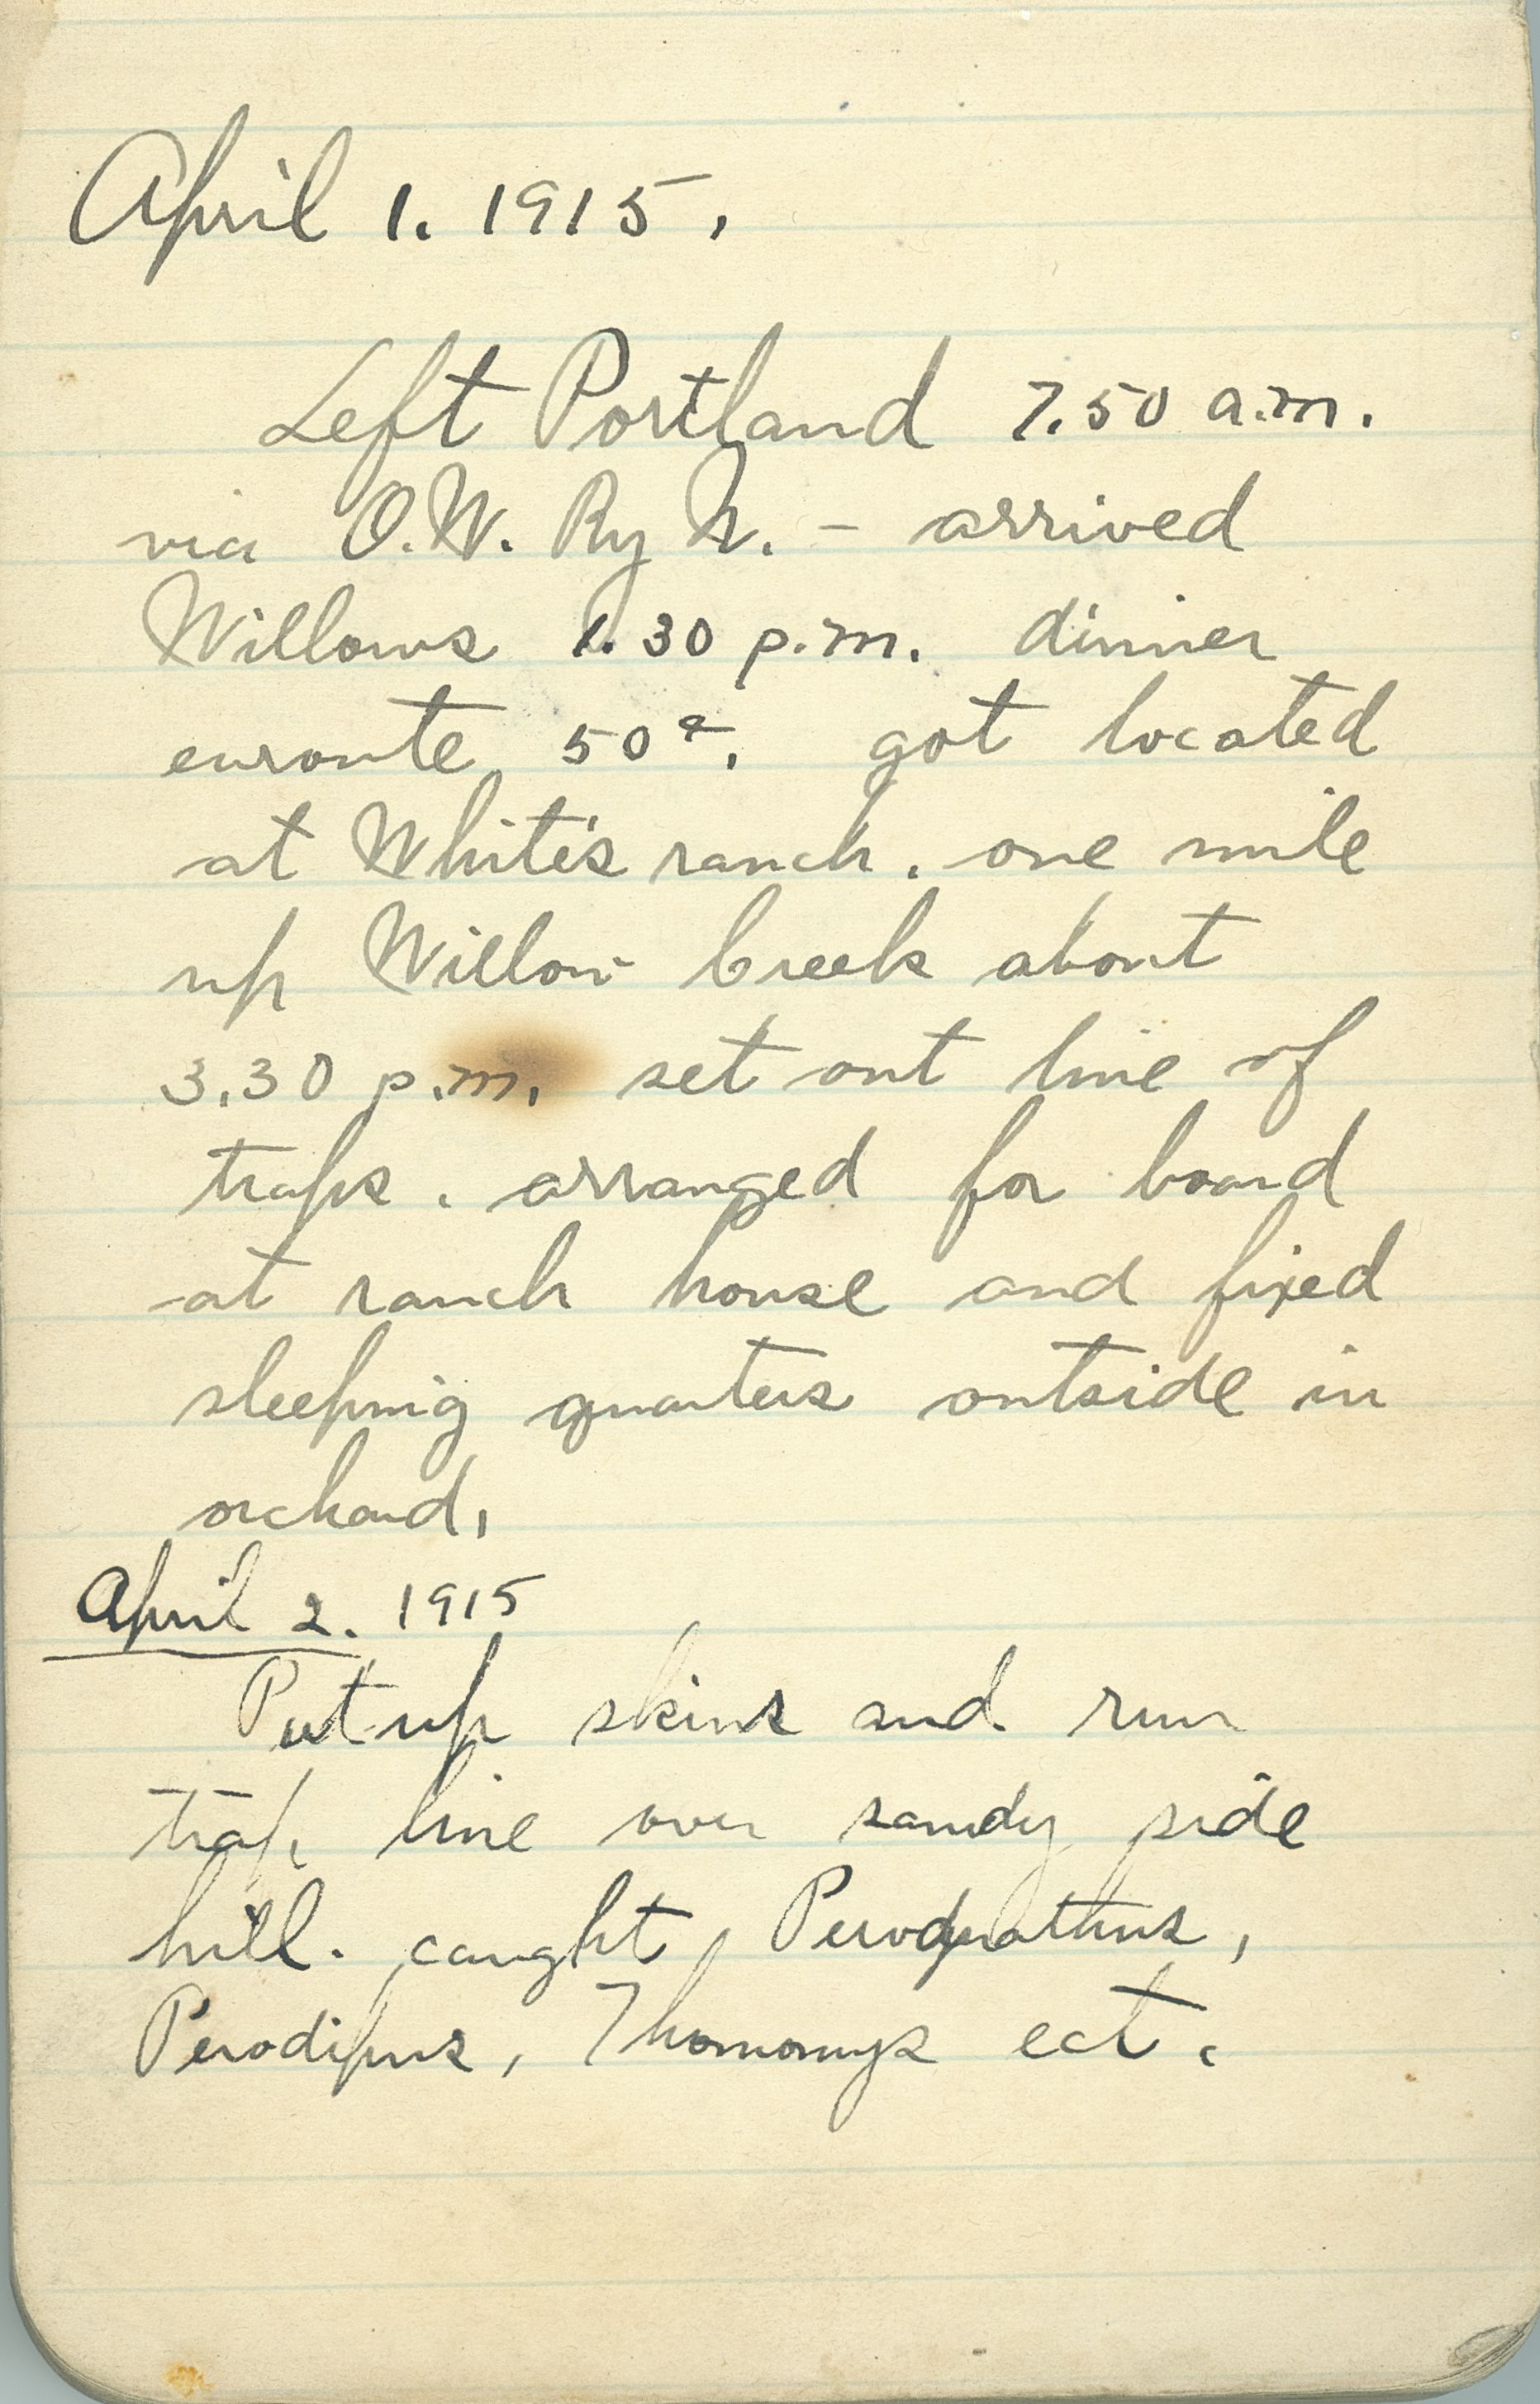 April 1. 1915.
Left Portland 7.50 a.m.
via O.W. Ry N. – arrived
Willows 1.30 p.m. dinner
enroute 50¢. got located
at White's ranch. one mile
up Willow Creek about
3.30 p.m. set out line of
traps. arranged for board
at ranch house and fixed
sleeping quarters outside in
orchard.
April 2. 1915
Put up skins and run
trap line over sandy side
hill. caught Perodnathus,
Perodipus, Thomomys ect.